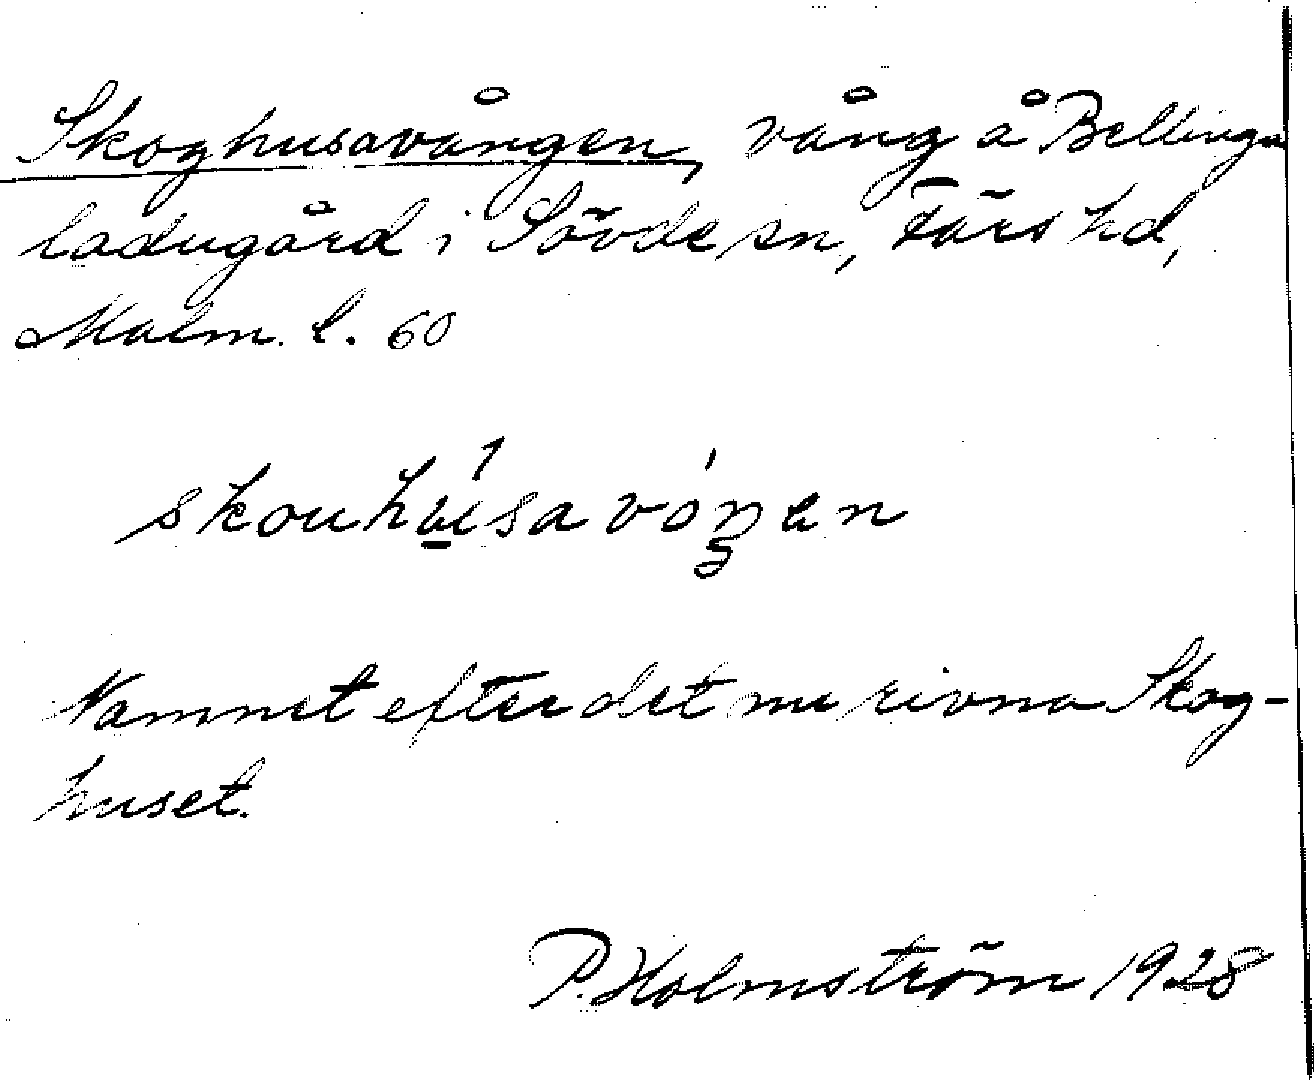 Skoghusavången, vång å Bellinga
ladugård i Sövde sn, Färs hd,
Malm. l. 60
skouhúsavóŋen
Namnet efter det nu rivna Skog-
huset.
P. Holmström 1928